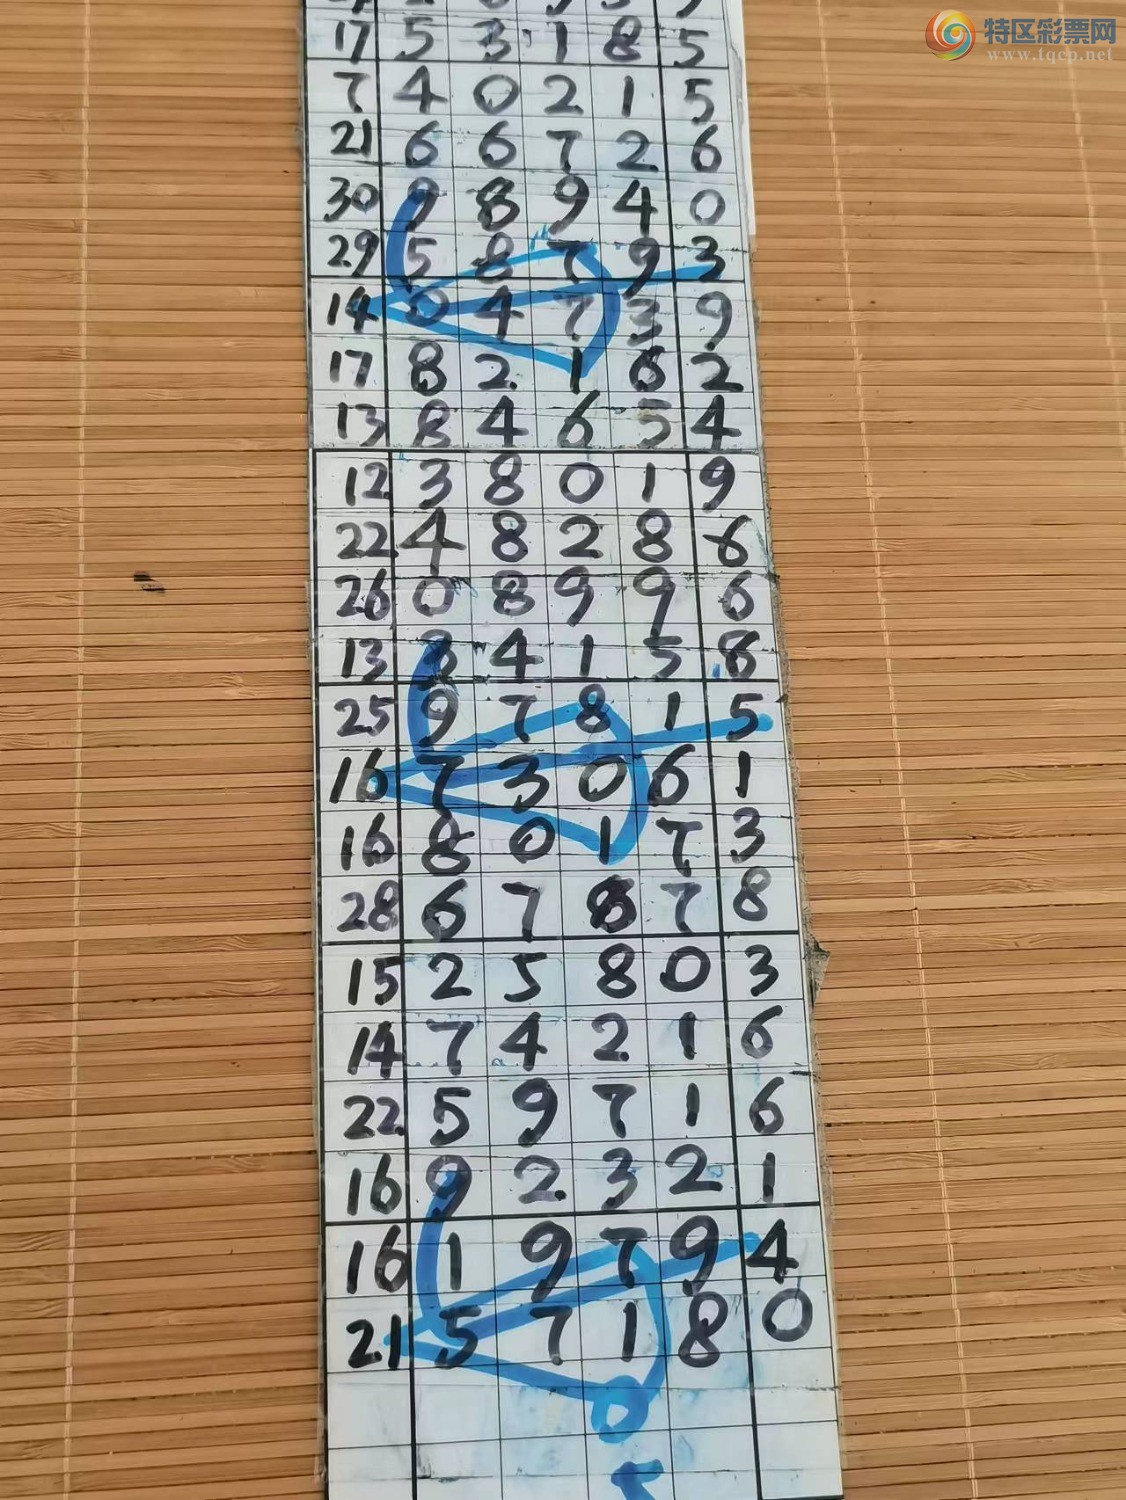 特区彩票网
www.tqcp.net
17 5 3 1 8 5
7 4 0 2 1 5
21 6 6 7 2 6
30 9 8 9 4 0
29 5 8 7 9 3
14 0 4 7 3 9
17 8 2 1 6 2
13 8 4 6 5 4
12 3 8 0 1 9
22 4 8 2 8 6
26 0 8 9 9 6
13 3 4 1 5 8
25 9 7 8 1 5
16 7 3 0 6 1
16 8 0 1 7 3
28 6 7 8 7 8
15 2 5 8 0 3
14 7 4 2 1 6
22 5 9 7 1 6
16 9 2 3 2 1
16 1 9 7 9 4
21 5 7 1 8 0